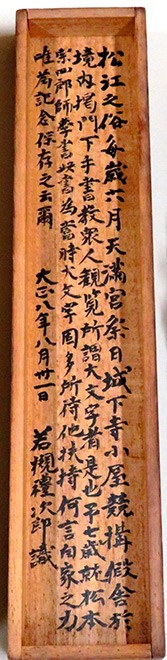 松江之俗每歲六月天滿宮祭日城下寺小屋競構假舍於
境内揭門下手書教衆人觀覽所謂大文字者是也予七歲就松本
宗四郎師學書此書為當時大文字固多所待他扶持何言自家之力
唯為記念保存之云爾 大正八年八月廿一日
若槻禮次郎識